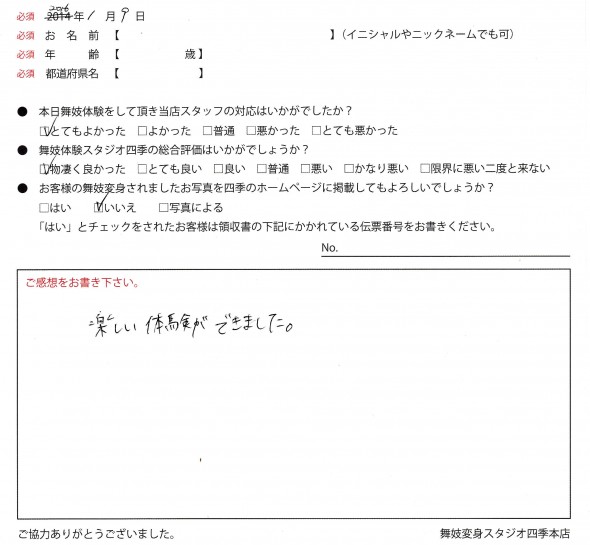 2016
必須 2014年 1月 9日
必須 お名前 【 】（イニシャルやニックネームでも可）
必須 年齢 【 歳】
必須 都道府県名 【 】
● 本日舞妓体験をして頂き当店スタッフの対応はいかがでしたか？
☑とてもよかった □よかった □普通 □悪かった □とても悪かった
● 舞妓体験スタジオ四季の総合評価はいかがでしょうか？
☑物凄く良かった □とても良い □良い □普通 □悪い □かなり悪い □限界に悪い二度と来ない
● お客様の舞妓変身されましたお写真を四季のホームページに掲載してもよろしいでしょうか？
□はい ☑いいえ □写真による
「はい」とチェックをされたお客様は領収書の下記にかかれている伝票番号をお書きください。
No.
ご感想をお書き下さい。
楽しい体験ができました。
ご協力ありがとうございました。 舞妓変身スタジオ四季本店